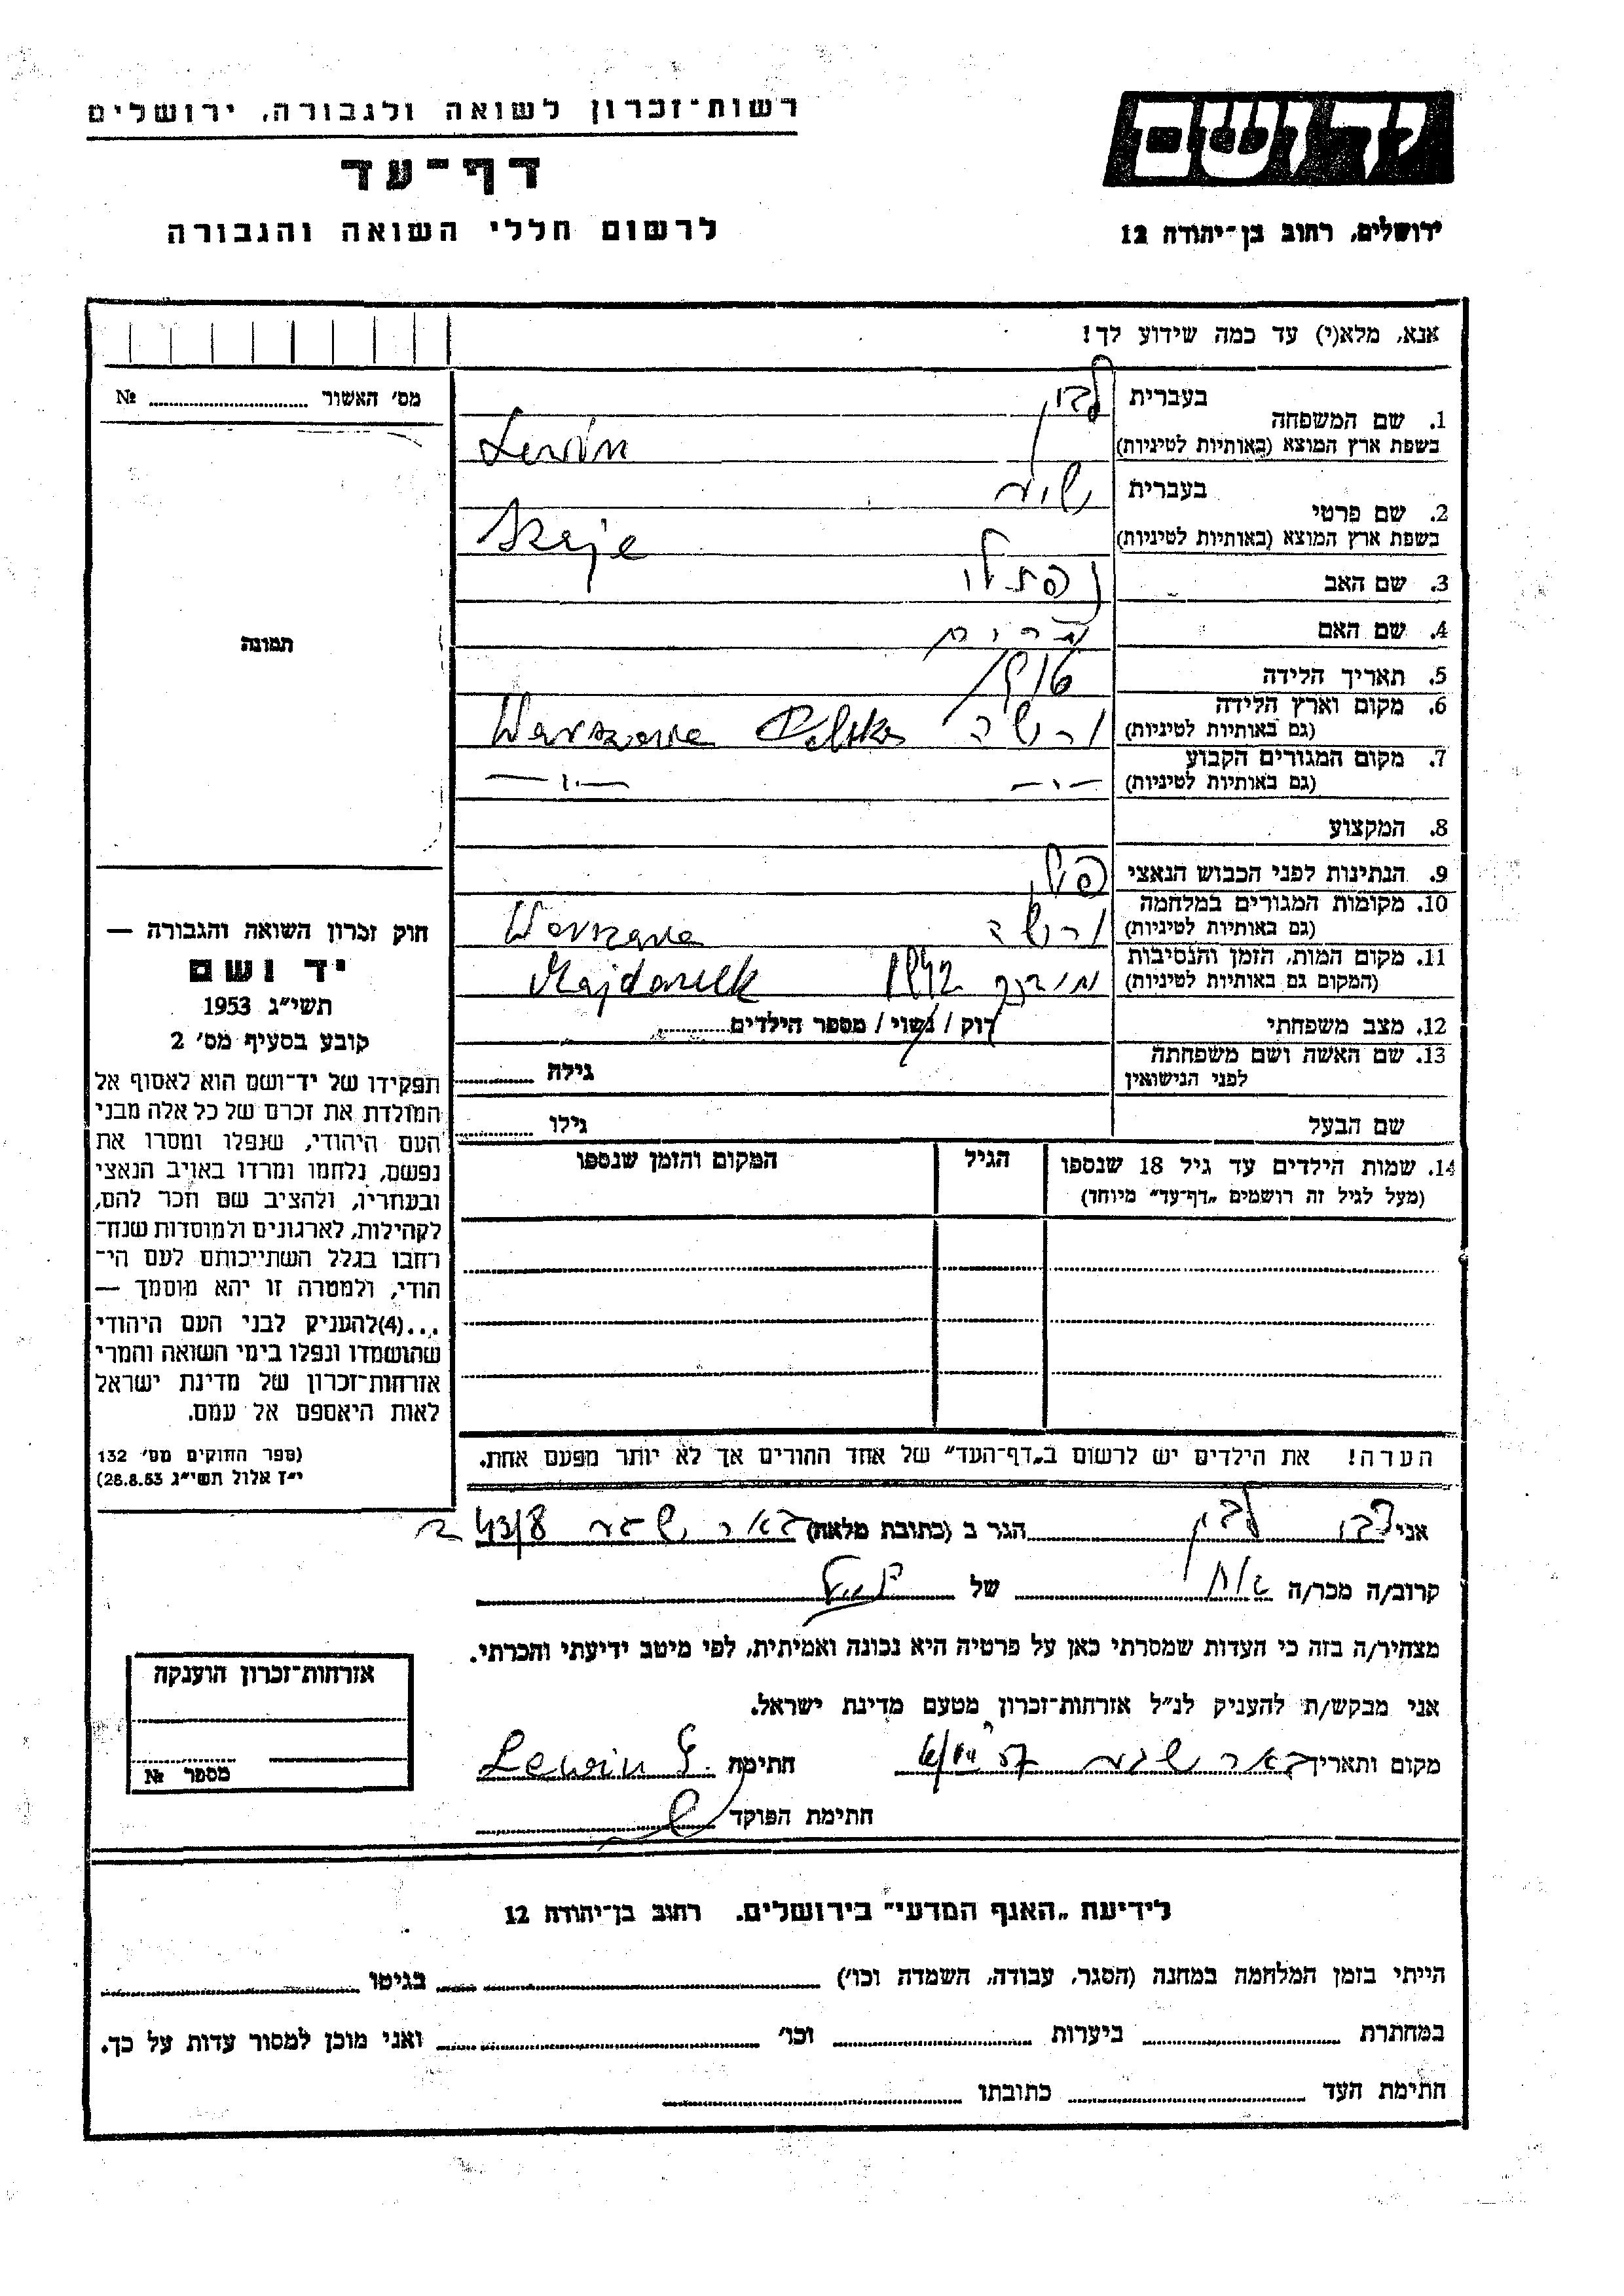 רשות־זכרון לשואה ולגבורה, ירושלים
דף־עד
לרשום חללי השואה והגבורה
יד ושם
ירושלים, רחוב בן־יהודה 12
אנא, מלא(י) עד כמה שידוע לך!
מס׳ האשור № 
1. שם המשפחה בעברית לבין
בשפת ארץ המוצא (באותיות לטיניות) Lewin
2. שם פרטי בעברית
בשפת ארץ המוצא (באותיות לטיניות) Szaje
3. שם האב נפתלי
4. שם האם מרים
5. תאריך הלידה
6. מקום וארץ הלידה (גם באותיות לטיניות) ורשה Warszawa Polska
7. מקום המגורים הקבוע (גם באותיות לטיניות) —"— —"—
8. המקצוע
9. הנתינות לפני הכבוש הנאצי
10. מקומות המגורים במלחמה (גם באותיות לטיניות) ורשה Warszawa
11. מקום המות, הזמן והנסיבות (המקום גם באותיות לטיניות) מידנק 1942 Majdanek
12. מצב משפחתי רוק / נשוי / מספר הילדים
13. שם האשה ושם משפחתה לפני הנישואין גילה
שם הבעל גילו
14. שמות הילדים עד גיל 18 שנספו (מעל לגיל זה רושמים „דף־עד״ מיוחד) הגיל המקום והזמן שנספו
הערה! את הילדים יש לרשום ב„דף־העד״ של אחד ההורים אך לא יותר מפעם אחת.
תמונה
חוק זכרון השואה והגבורה —
יד ושם
תשי״ג 1953
קובע בסעיף מס׳ 2
תפקידו של יד־ושם הוא לאסוף אל
המולדת את זכרם של כל אלה מבני
העם היהודי, שנפלו ומסרו את
נפשם, נלחמו ומרדו באויב הנאצי
ובעוזריו, ולהציב שם וזכר להם,
לקהילות, לארגונים ולמוסדות שנח־
רבו בגלל השתייכותם לעם הי־
הודי, ולמטרה זו יהא מוסמך —
...(4)להעניק לבני העם היהודי
שהושמדו ונפלו בימי השואה והמרי
אזרחות־זכרון של מדינת ישראל
לאות היאספם אל עמם.
(ספר החוקים מס׳ 132
י״ז אלול תשי״ג 28.8.53)
אני לבין הגר ב (כתובת מלאה) באר שבע 43/8
קרוב/ה מכר/ה אח של
מצהיר/ה בזה כי העדות שמסרתי כאן על פרטיה היא נכונה ואמיתית, לפי מיטב ידיעתי והכרתי.
אני מבקש/ת להעניק לנ״ל אזרחות־זכרון מטעם מדינת ישראל.
מקום ותאריך באר שבע חתימה Lewin
חתימת הפוקד
אזרחות־זכרון הוענקה
מספר №
לידיעת „האגף המדעי״ בירושלים. רחוב בן־יהודה 12
הייתי בזמן המלחמה במחנה (הסגר, עבודה, השמדה וכו׳) בגיטו
במחתרת ביערות וכו׳ ואני מוכן למסור עדות על כך.
חתימת העד כתובתו